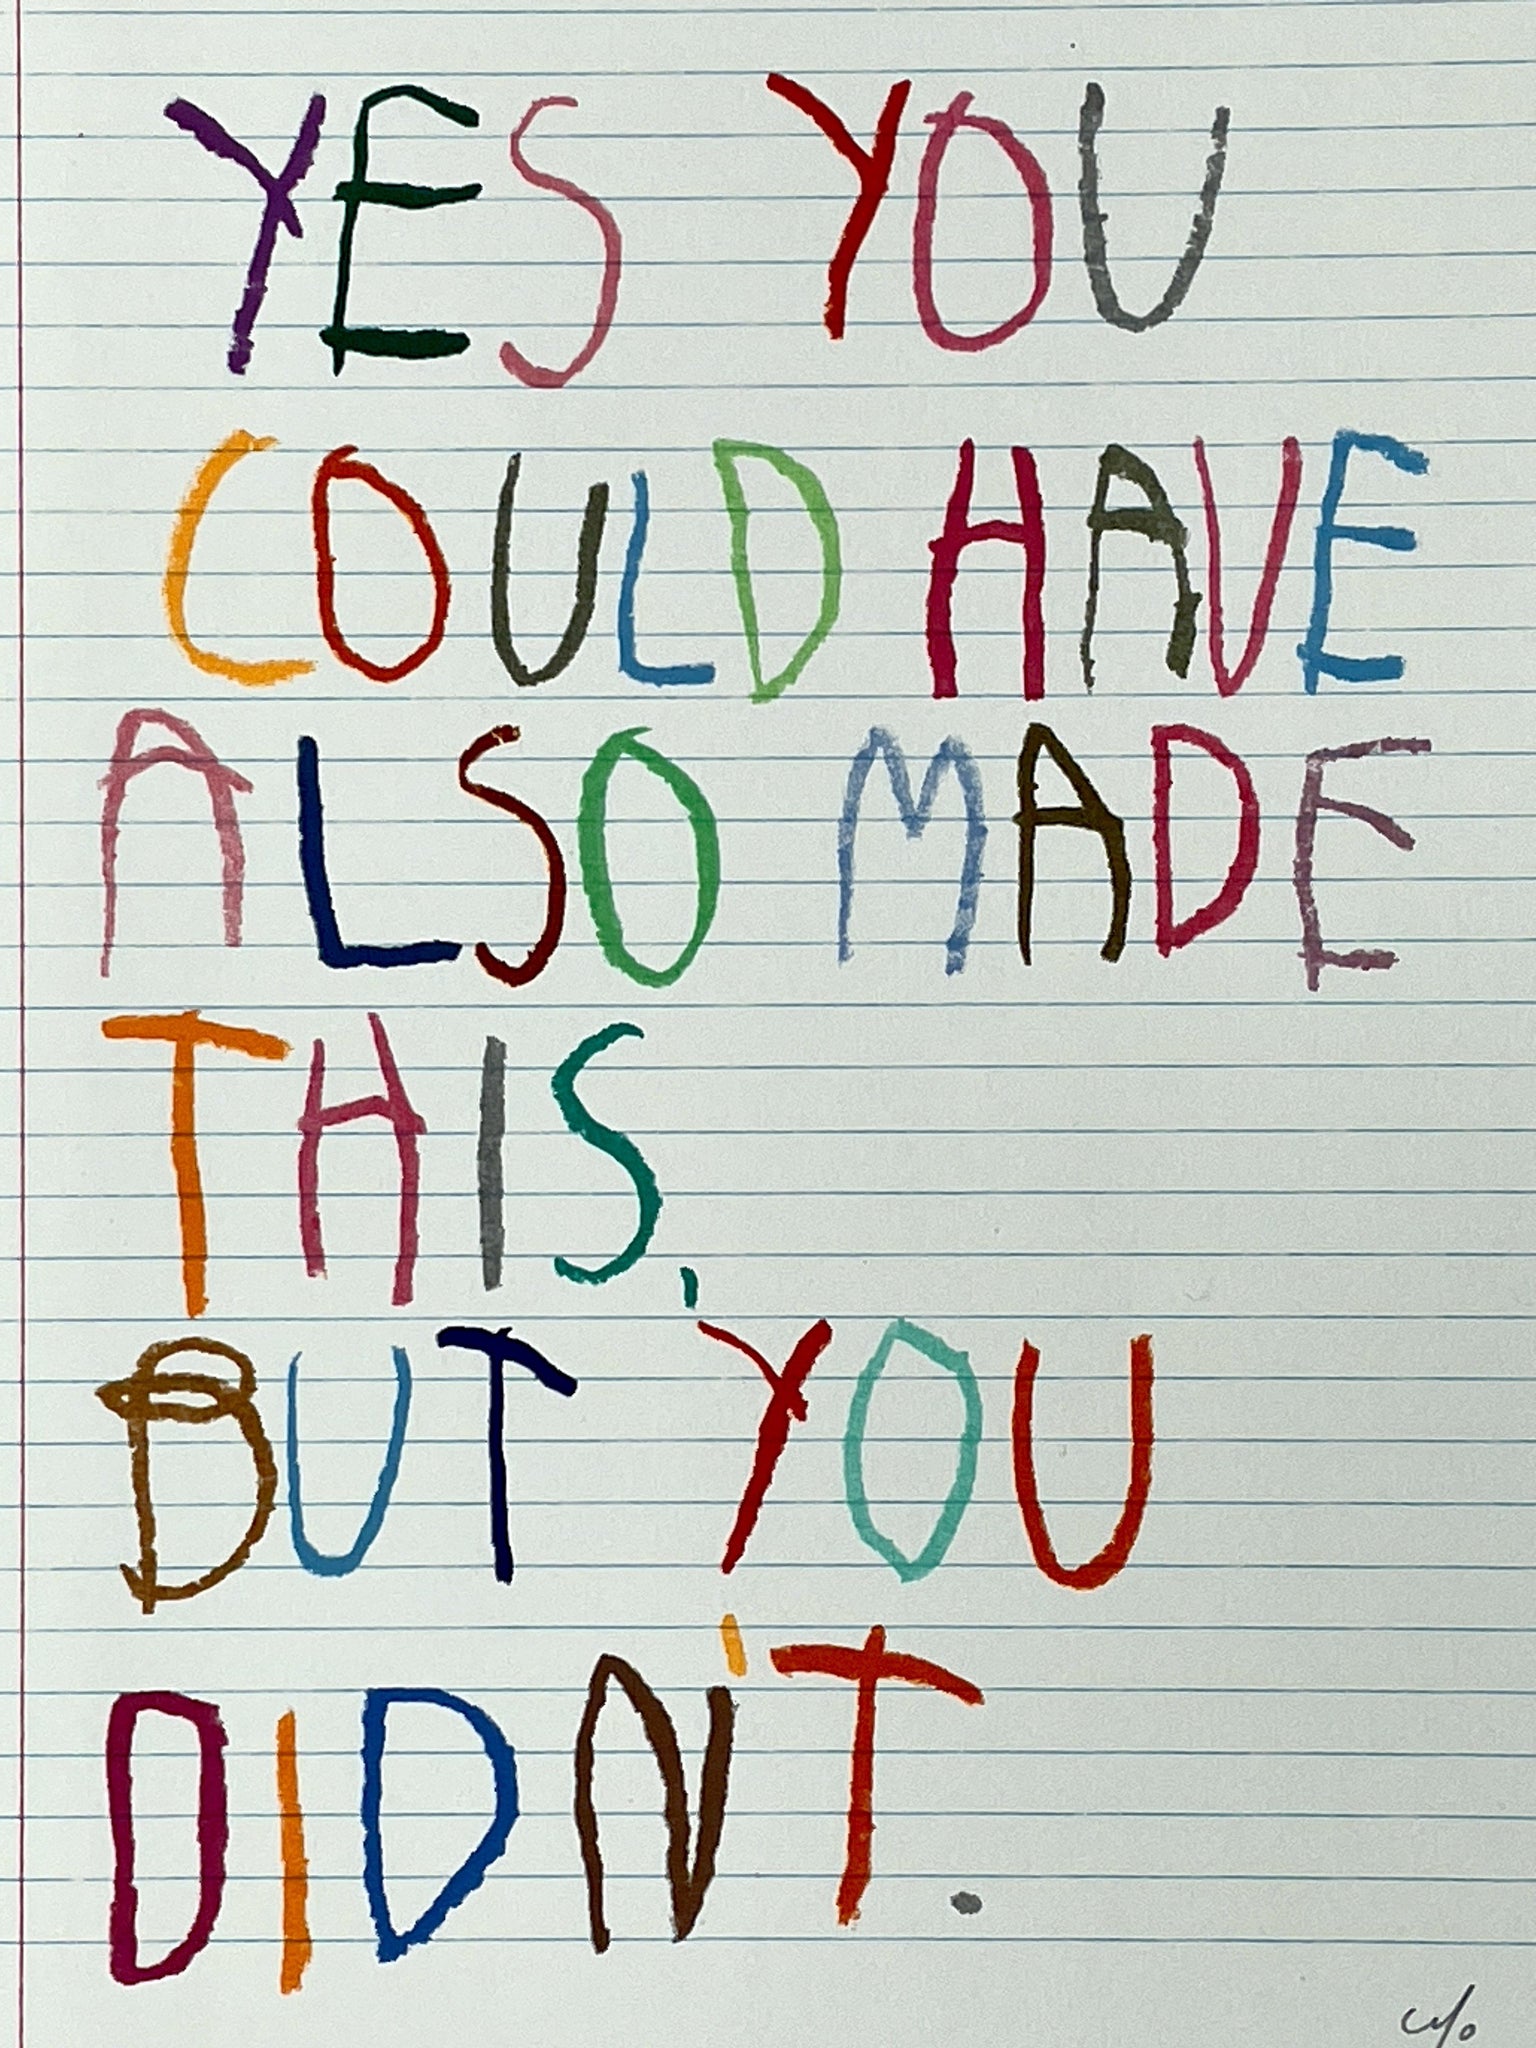 YES YOU
COULD HAVE
ALSO MADE
THIS,
BUT YOU
DIDN'T.